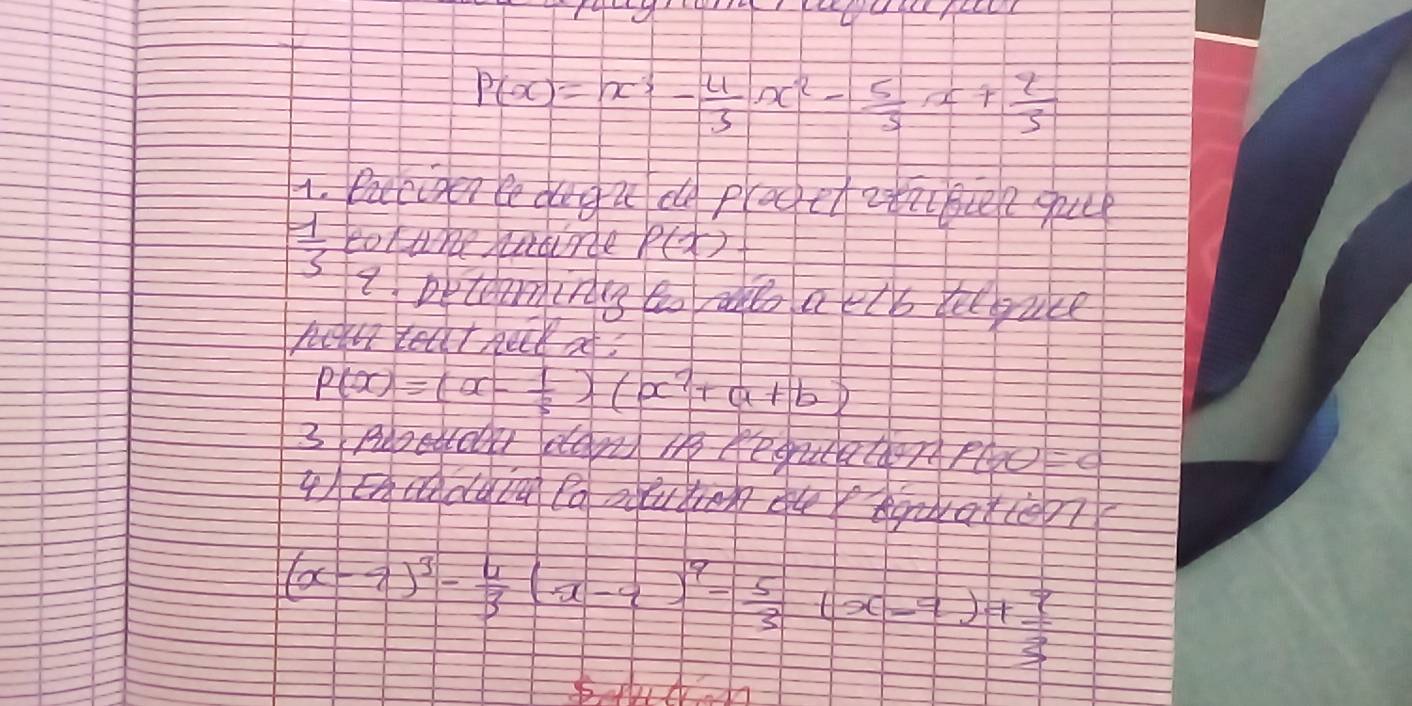 P(x) = x³ - 4/3 x² - 5/3 x + 2/3
1. Preciser le degré de P(x) et vérifier que
1/3 est une racine P(x).
2. Déterminez les réels a et b tel que
pour tout réel x :
P(x) = (x - 1/3) (x² + a + b)
3. Résoudre dans IR l'équation P(x) = 0
4) En déduire la solution de l'équation :
(x - 2)³ - 4/3 (x - 2)² - 5/3 (x - 2) + 2/3
Solution